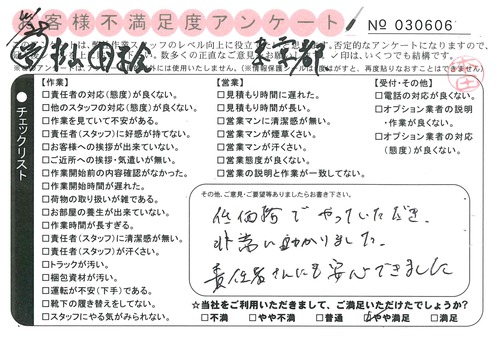 お客様不満足度アンケート
No 030606
東京都
【作業】
□責任者の対応(態度)が良くない。
□他のスタッフの対応(態度)が良くない。
□作業を見ていて不安がある。
□責任者(スタッフ)に好感が持てない。
□お客様への挨拶が出来ていない。
□ご近所への挨拶・気遣いが無い。
□作業開始前の内容確認がなかった。
□作業開始時間が遅れた。
□荷物の取り扱いが雑である。
□お部屋の養生が出来ていない。
□作業時間が長すぎる。
□責任者(スタッフ)に清潔感が無い。
□責任者(スタッフ)が汗くさい。
□トラックが汚い。
□梱包資材が汚い。
□運転が不安(下手)である。
□靴下の履き替えをしてない。
□スタッフにやる気がみられない。
【営業】
□見積もり時間に遅れた。
□見積もり時間が長い。
□営業マンに清潔感が無い。
□営業マンが煙草くさい。
□営業マンが汗くさい。
□営業態度が良くない。
□営業の説明と作業が一致してない。
【受付・その他】
□電話の対応が良くない。
□オプション業者の説明
・作業が良くない。
□オプション業者の対応
(態度)が良くない。
チェックリスト
その他、ご意見・ご要望等ありましたらお書き下さい。
低価格でやっていただき、
非常に助かりました。
責任者さんにも安心できました
☆当社をご利用いただきまして、ご満足いただけたでしょうか?
□不満 □やや不満 □普通 □やや満足 □満足